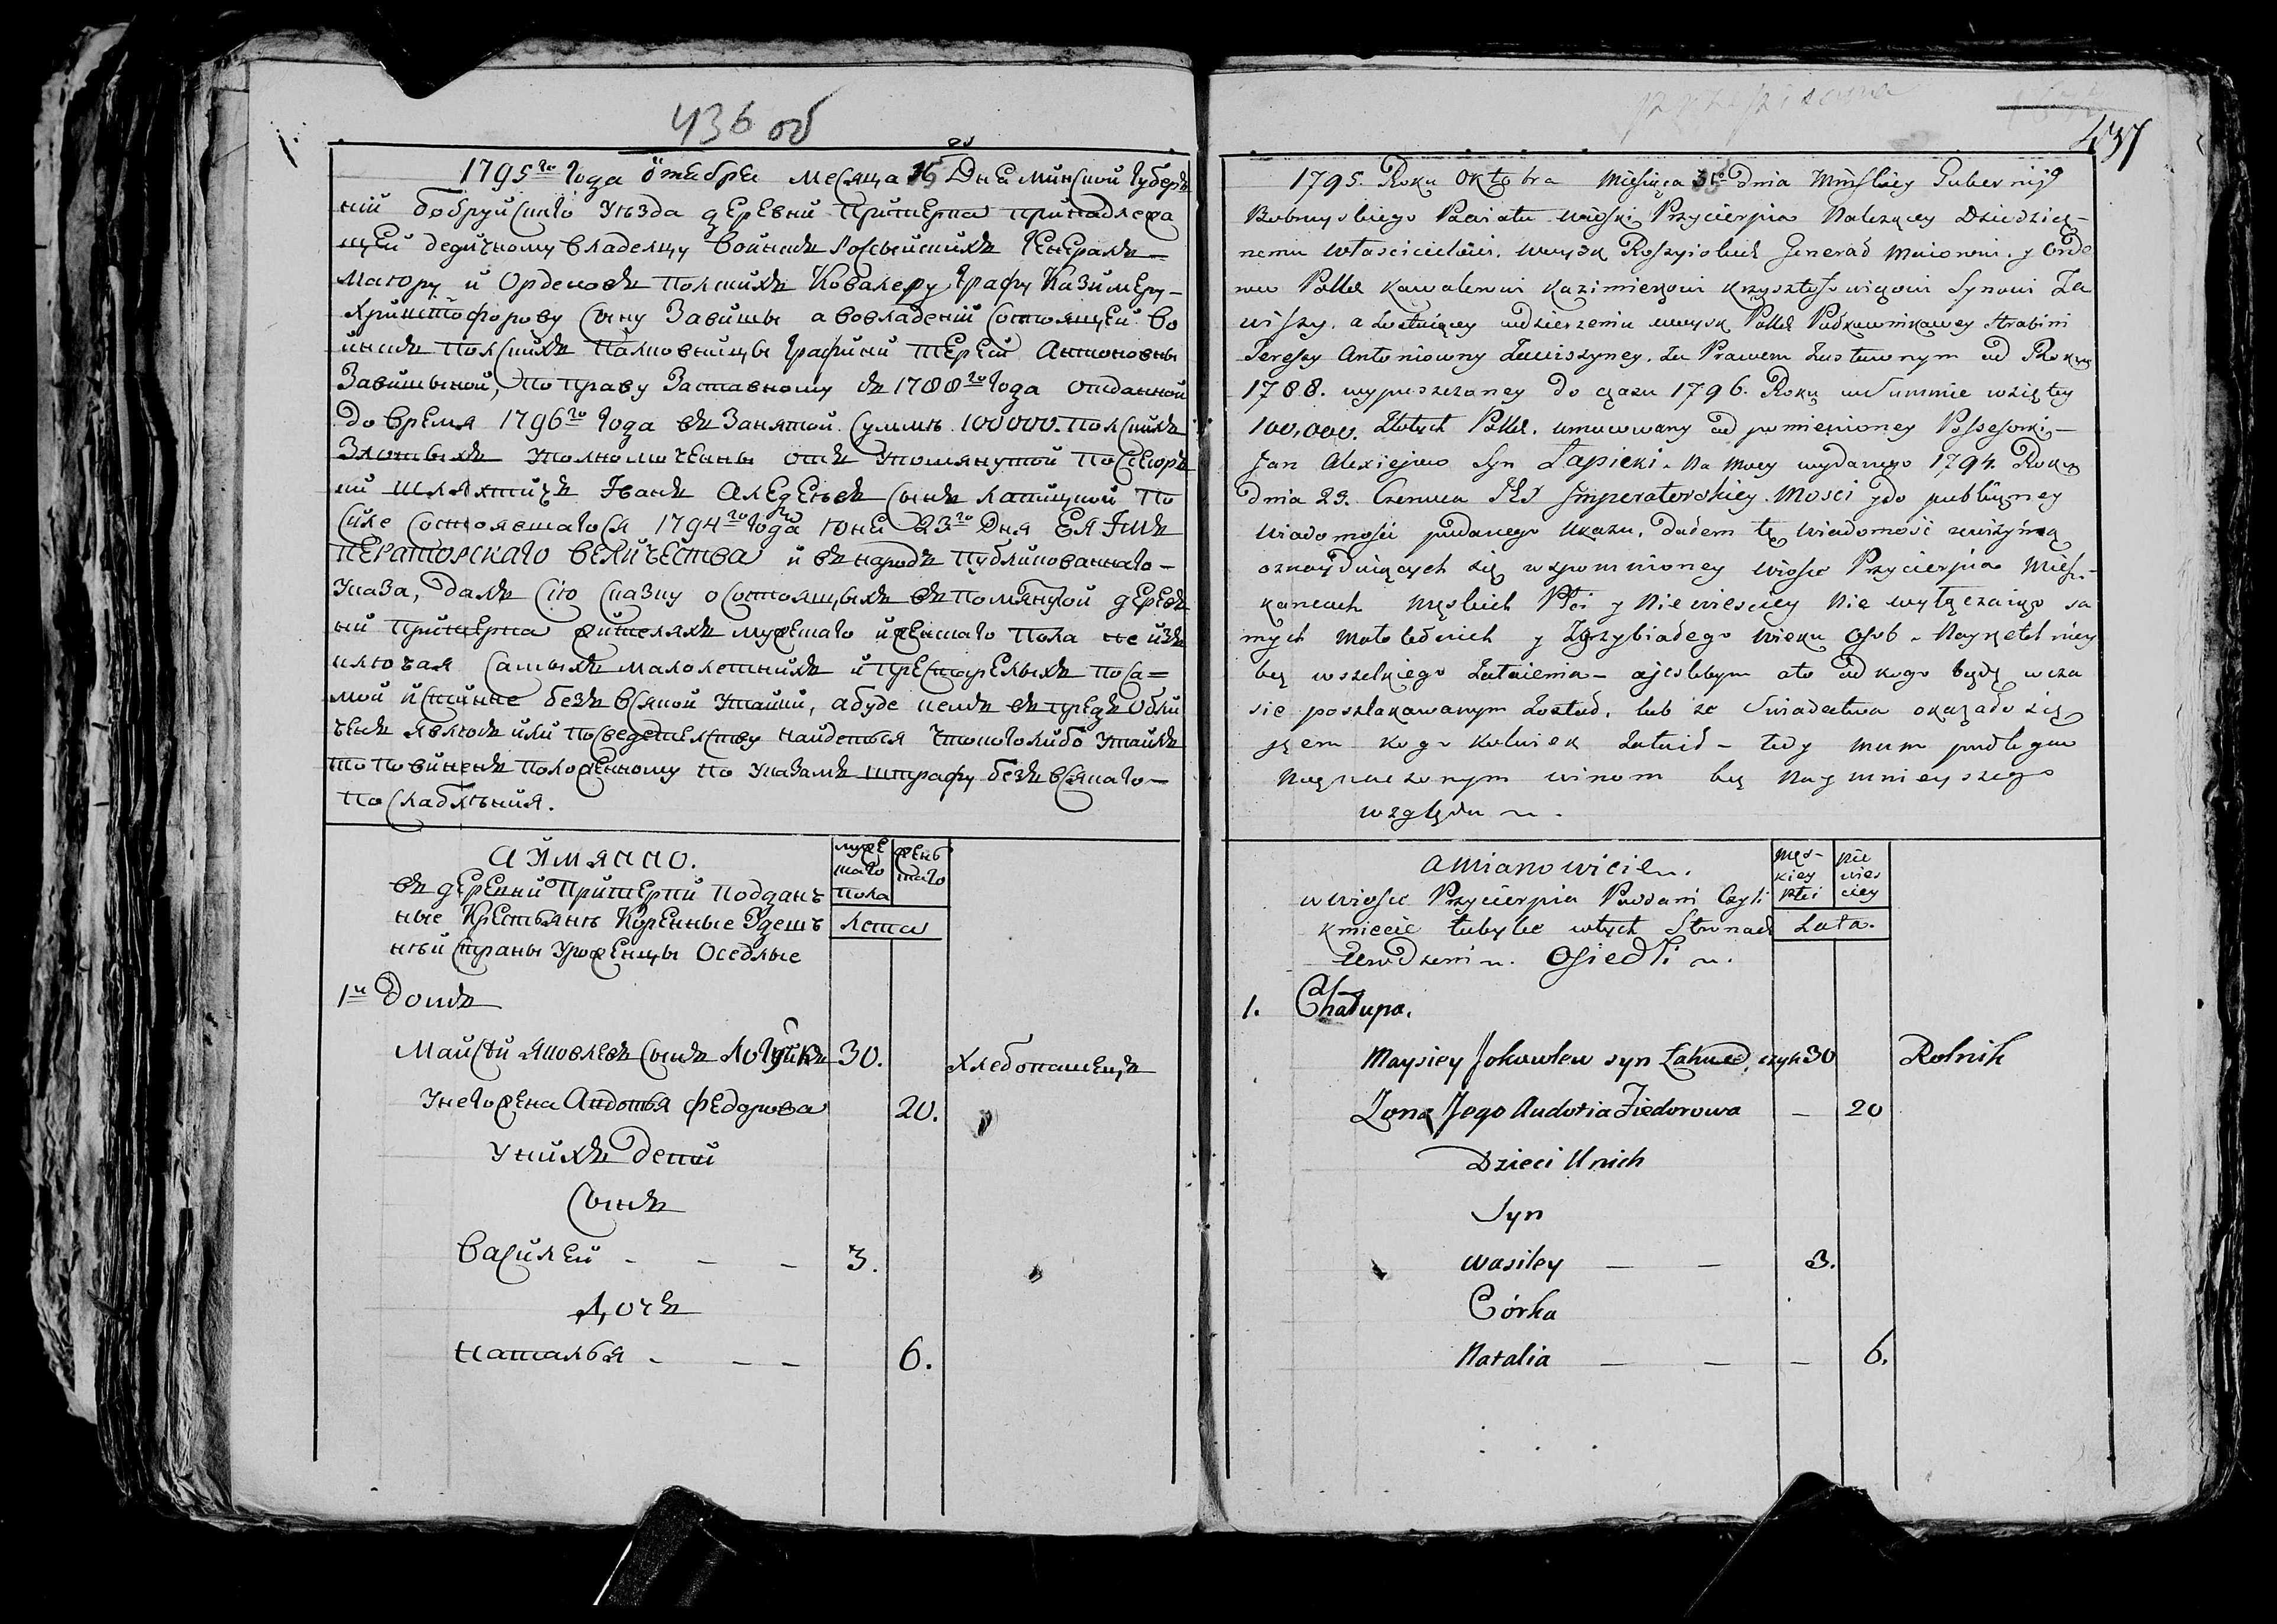 436 об
1795го года октября месяца 15 Дня минской губерн
ніи бобруйскаго уезда деревни притерпа принадлежа
щей дедичному владелцу войскъ Россыйскихъ Генералъ
Маіору и Орденовъ полскихъ Ковалеру Графу Казимеру
Христофорову Сыну Завишы а вовладеніи Состоящей во
йскъ полскихъ полковницы Графини терезіи Антоновны
Завишыной, по праву Заставному съ 1788го года отданной
до время 1796го года въ Занятой суммѣ 100000. полскихъ
Злотыхъ уполномоченны отъ упомянутой посесоръ
ки Шляхтичъ Іванъ Алецеевъ Сынъ Лапицкой по
силе Состоявшагося 1794го года Іюня 23го Дня ЕЯ Імъ
ператорскаго величества и въ народъ публикованнаго
указа, далъ сію сказку о состоящыхъ въ помянутой деревъ
ни притерпа жителяхъ мужескаго и женскаго пола не изъ
ключая самыхъ малолетнихъ и престарелыхъ по са=
мой истинне безъ всякой утайки, а буде кемъ въ предь обли
ченъ явлюсь или посведетелству найдется что коголибо утаилъ
то повиненъ положенному по указамъ штрафу безъ всякаго
послаблѣния.
Аимянно.
въ деревни Притерпи подданъ
ные Крестьянѣ Коренные Здешъ
нѣй страны уроженцы Оседлые
муже
скаго
женъ
скаго
пола
Лета
1й Домъ
Майсѣй Яковлевъ Сынъ 30. Хлебопашецъ
У него жена Авдотья Федорова 20.
У нихъ дети
Сынъ
Василей - - - 3.
Дочь
Наталья - - - 6.
437
1795. Roku Oktobra Miesiąca dnia Minskiey Gubernij
Bobruyskiego Powiatu wioski Przycierpia Należącey Dziedzicz-
nemu właścicielowi. woysk Roszyiskich Generał Maiorowi. y Orde
row Polld Kawalerowi Kazimierzowi Krzysztofowiczowi Synowi Za
wiszy. a zostaiącey wdzierzeniu woysk Polld Półkownikowey Hrabini
Tereszy Antoniowny Zawiszyney. Za Prawem Zastawnym od Roku
1788. wypuszczoney do czasu 1796. Roku w Summie wziętey
100,000. Złotych Polld. umocowany od pomienioney Possesorki
Jan Alexiejew Syn Łapicki. Na Mocy wydanego 1794. Roku
dnia 23. Czerwca Jey Jmperatorskiey. Mosci y do publiczney
wiadomości podanego Ukazu, dałem tę wiadomość rewizyiną
oznayduiących się wspomnioney wiosce Przycierpia Miesz-
kancach męskich Płci y Niewiesciey Nie wyłączaiąc sa
mych Małoletnich y Zgrzybiałego wieku osob. Nayrzetelniey
bez wszelkiego Zataienia - ajesłibym oto od kogo będz wcza
sie poszlakowanym Został, lub ze Swiadectwa okazało się
żem kogo kolwiek Zataił - tedy mam podlegac
Naznaczonym winom bez Naymnieyszego
względu.
Amianowicie.
w wiosce Przycierpia Poddani Czyli
Kmiecie tubylce wtych Stronach
Urodzeni. Osiedli.
męs-
kiey
płci
nie
wies
ciey
Lata.
1. Chałupa.
Maysiey Jakowlew syn 30 Rolnik
Zona Jego Audotia Fiedorowa - 20
Dzieci Unich
Syn
Wasiley - - 3.
Córka
Natalia - - - 6.